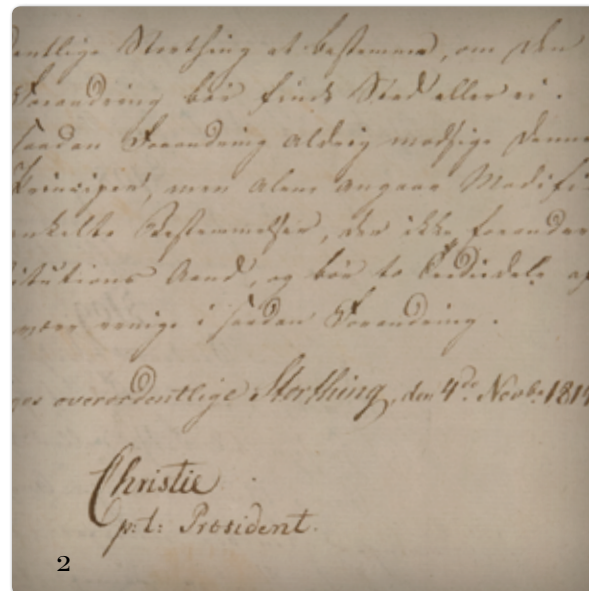 entlige Storthing at bestemme, om den
Forandring bør finde Sted eller ei.
saadan Forandring aldrig modsige denne
Principer, men alene angaae Modifi
enkelte Bestemmelser, der ikke forandre
itutions Aand, og bør to Trediedele af
være enige i saadan Forandring.
ges overordentlige Storthing, den 4de Novbr 1814
Christie
p: t: Præsident.
2